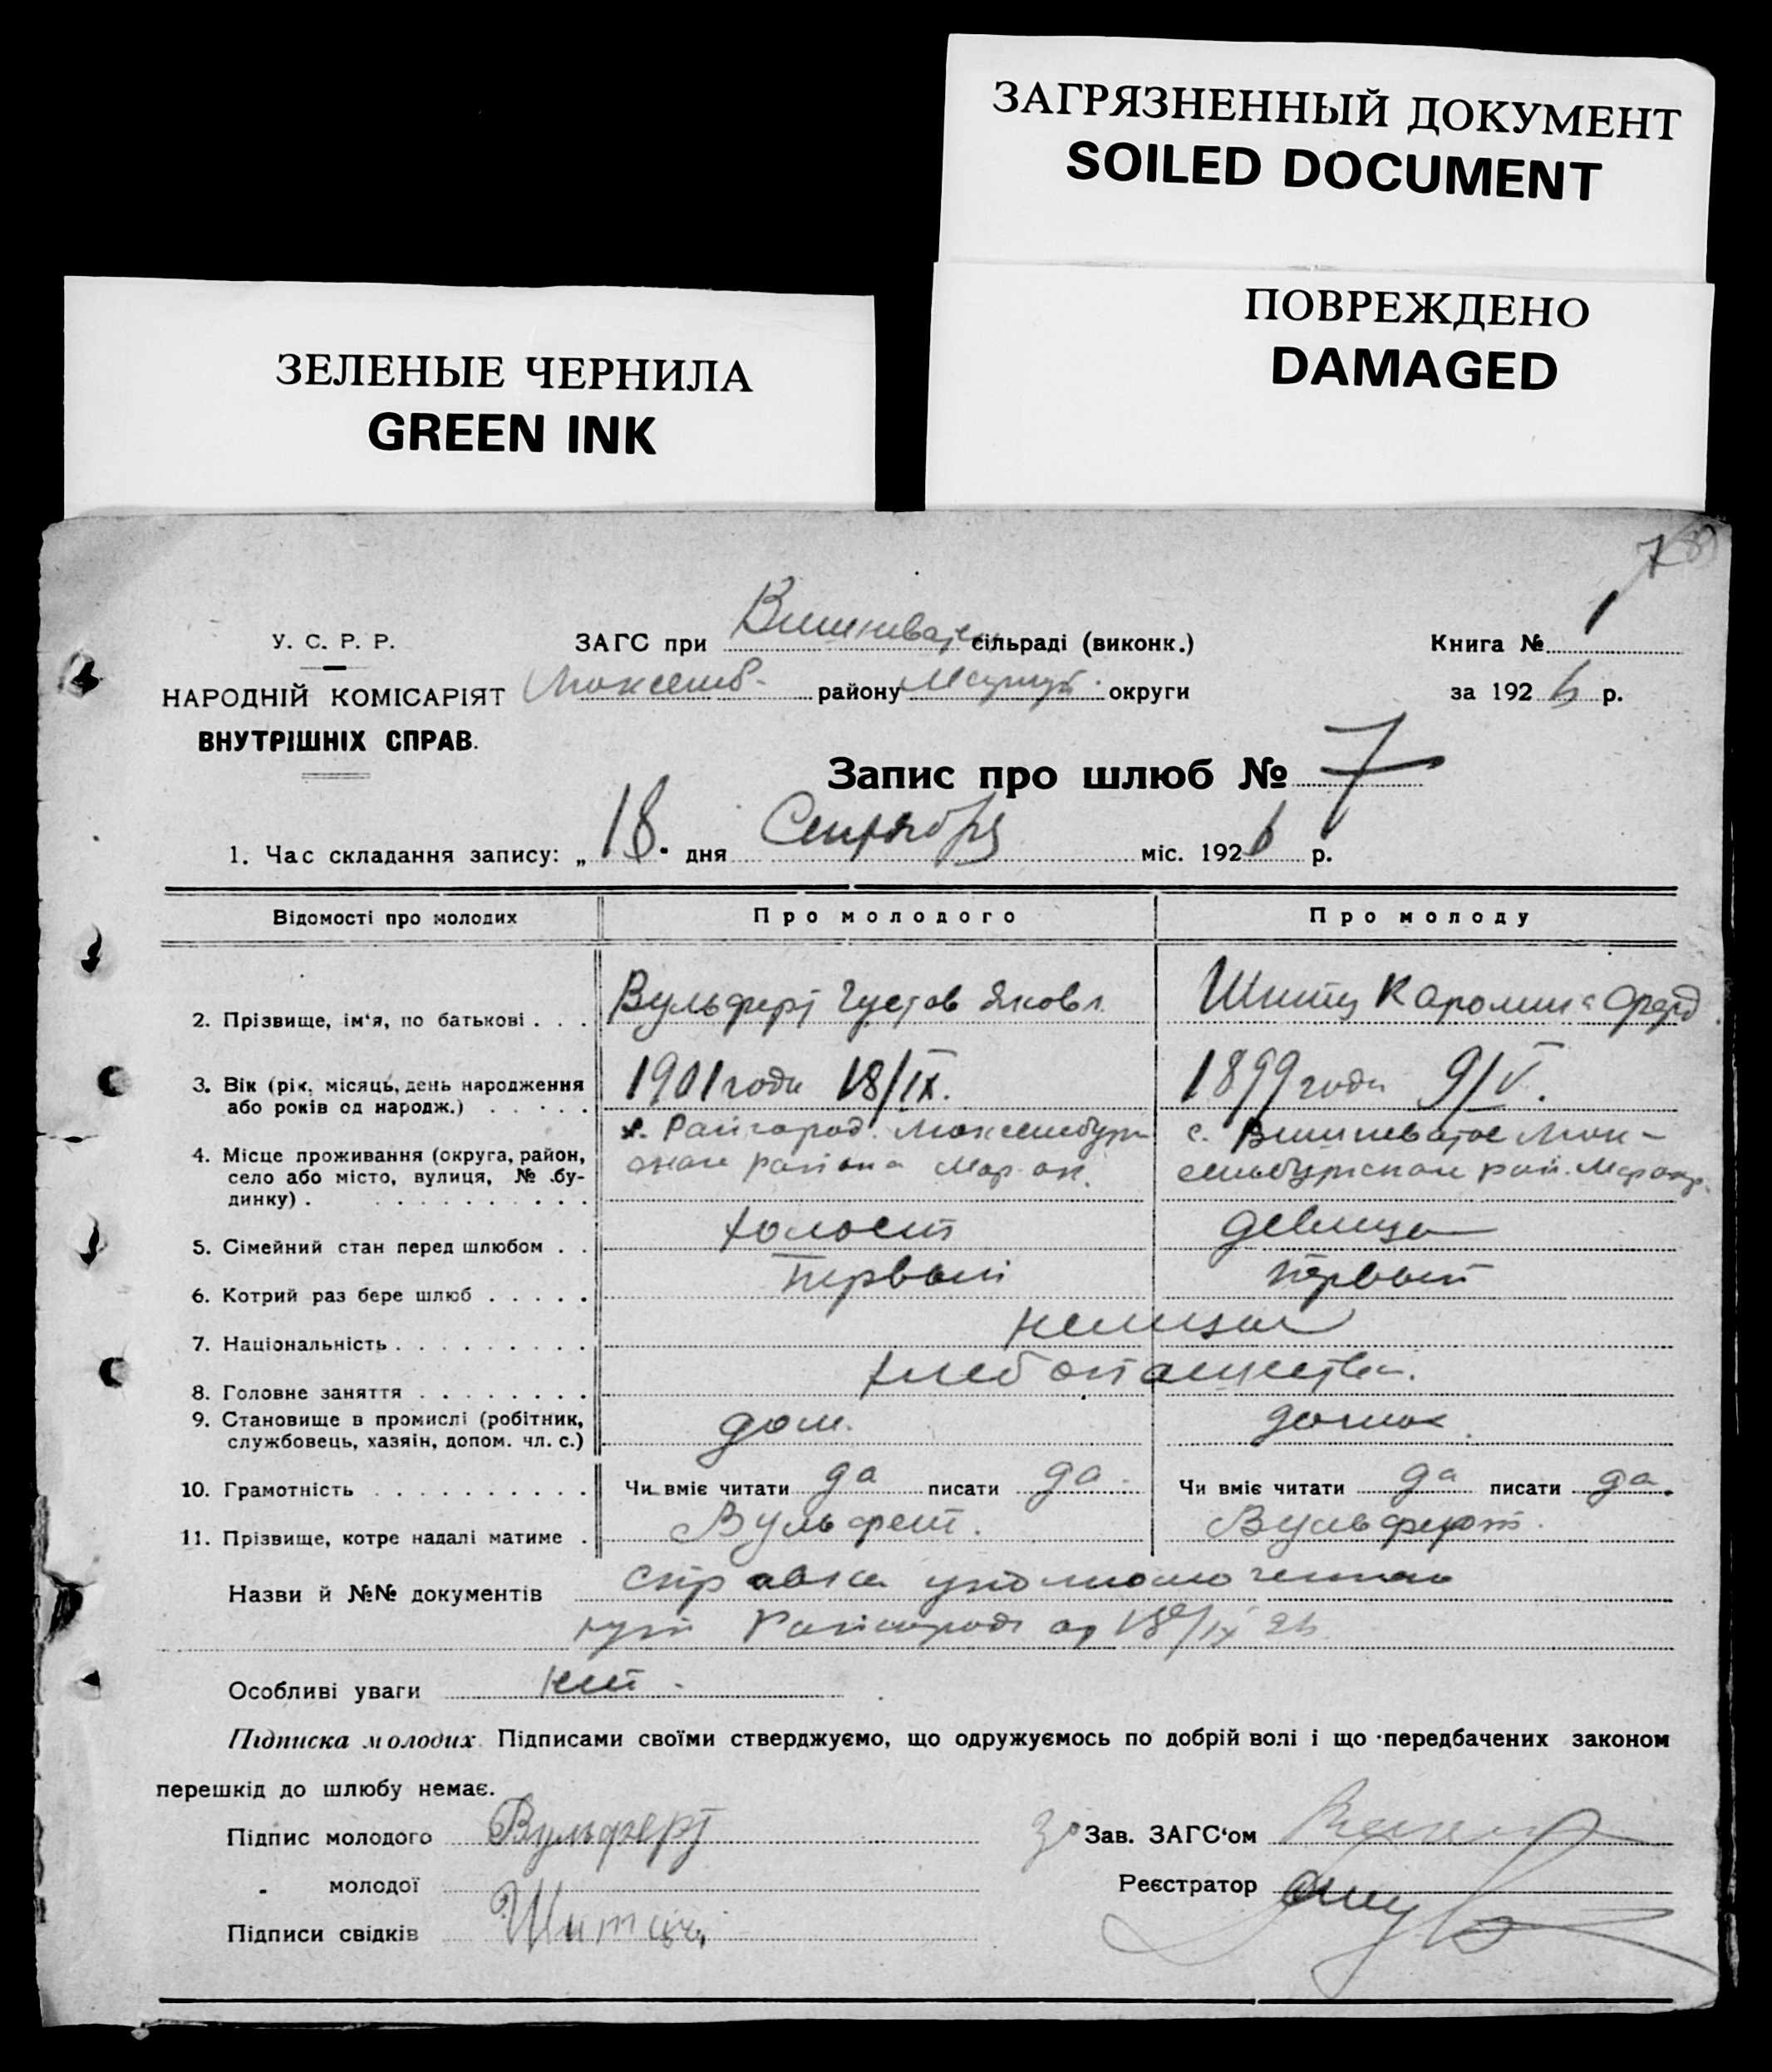 ЗАГРЯЗНЕННЫЙ ДОКУМЕНТ
SOILED DOCUMENT
ПОВРЕЖДЕНО
DAMAGED
ЗЕЛЕНЫЕ ЧЕРНИЛА
GREEN INK
7
У. С. Р. Р.
НАРОДНІЙ КОМІСАРІЯТ
ВНУТРІШНІХ СПРАВ.
ЗАГС при сільраді (виконк.)
району округи
Книга № 1
за 1926 р.
Запис про шлюб № 7
1. Час складання запису: „ 18 " дня Сентября міс. 1926 р.
Відомості про молодих Про молодого Про молоду
2. Прізвище, ім'я, по батькові . . . Вульферт Густав Яковл. Шниц Каролина Ферд.
3. Вік (рік, місяць, день народження або років од народж.) . . . . . 1901 года 18/IX. 1899 года 9/V.
4. Місце проживання (округа, район, село або місто, вулиця, № бу-динку) . . . . . . . . . .
х. Райгород. Люксембург- с. Вишневатое Люк-
ского района Мар. ок. сембургского рай. Мар. окр.
5. Сімейний стан перед шлюбом . . холост девица
6. Котрий раз бере шлюб . . . . . Первый первый
7. Національність . . . . . . . . . немцы
8. Головне заняття . . . . . . . . хлебопашество.
9. Становище в промислі (робітник, службовець, хазяін, допом. чл. с.) дом. домох.
10. Грамотність . . . . . . . . . . Чи вміє читати да писати да. Чи вміє читати да писати да.
11. Прізвище, котре надалі матиме . Вульферт. Вульферт.
Назви й №№ документів справка уполномоченного
Райгорода от 18/IX 26
Особливі уваги нет.
Підписка молодих. Підписами своїми стверджуємо, що одружуємось по добрій волі і що передбачених законом
перешкід до шлюбу немає.
Підпис молодого Вульферт
за Зав. ЗАГС'ом
„ молодої
Реєстратор
Підписи свідків